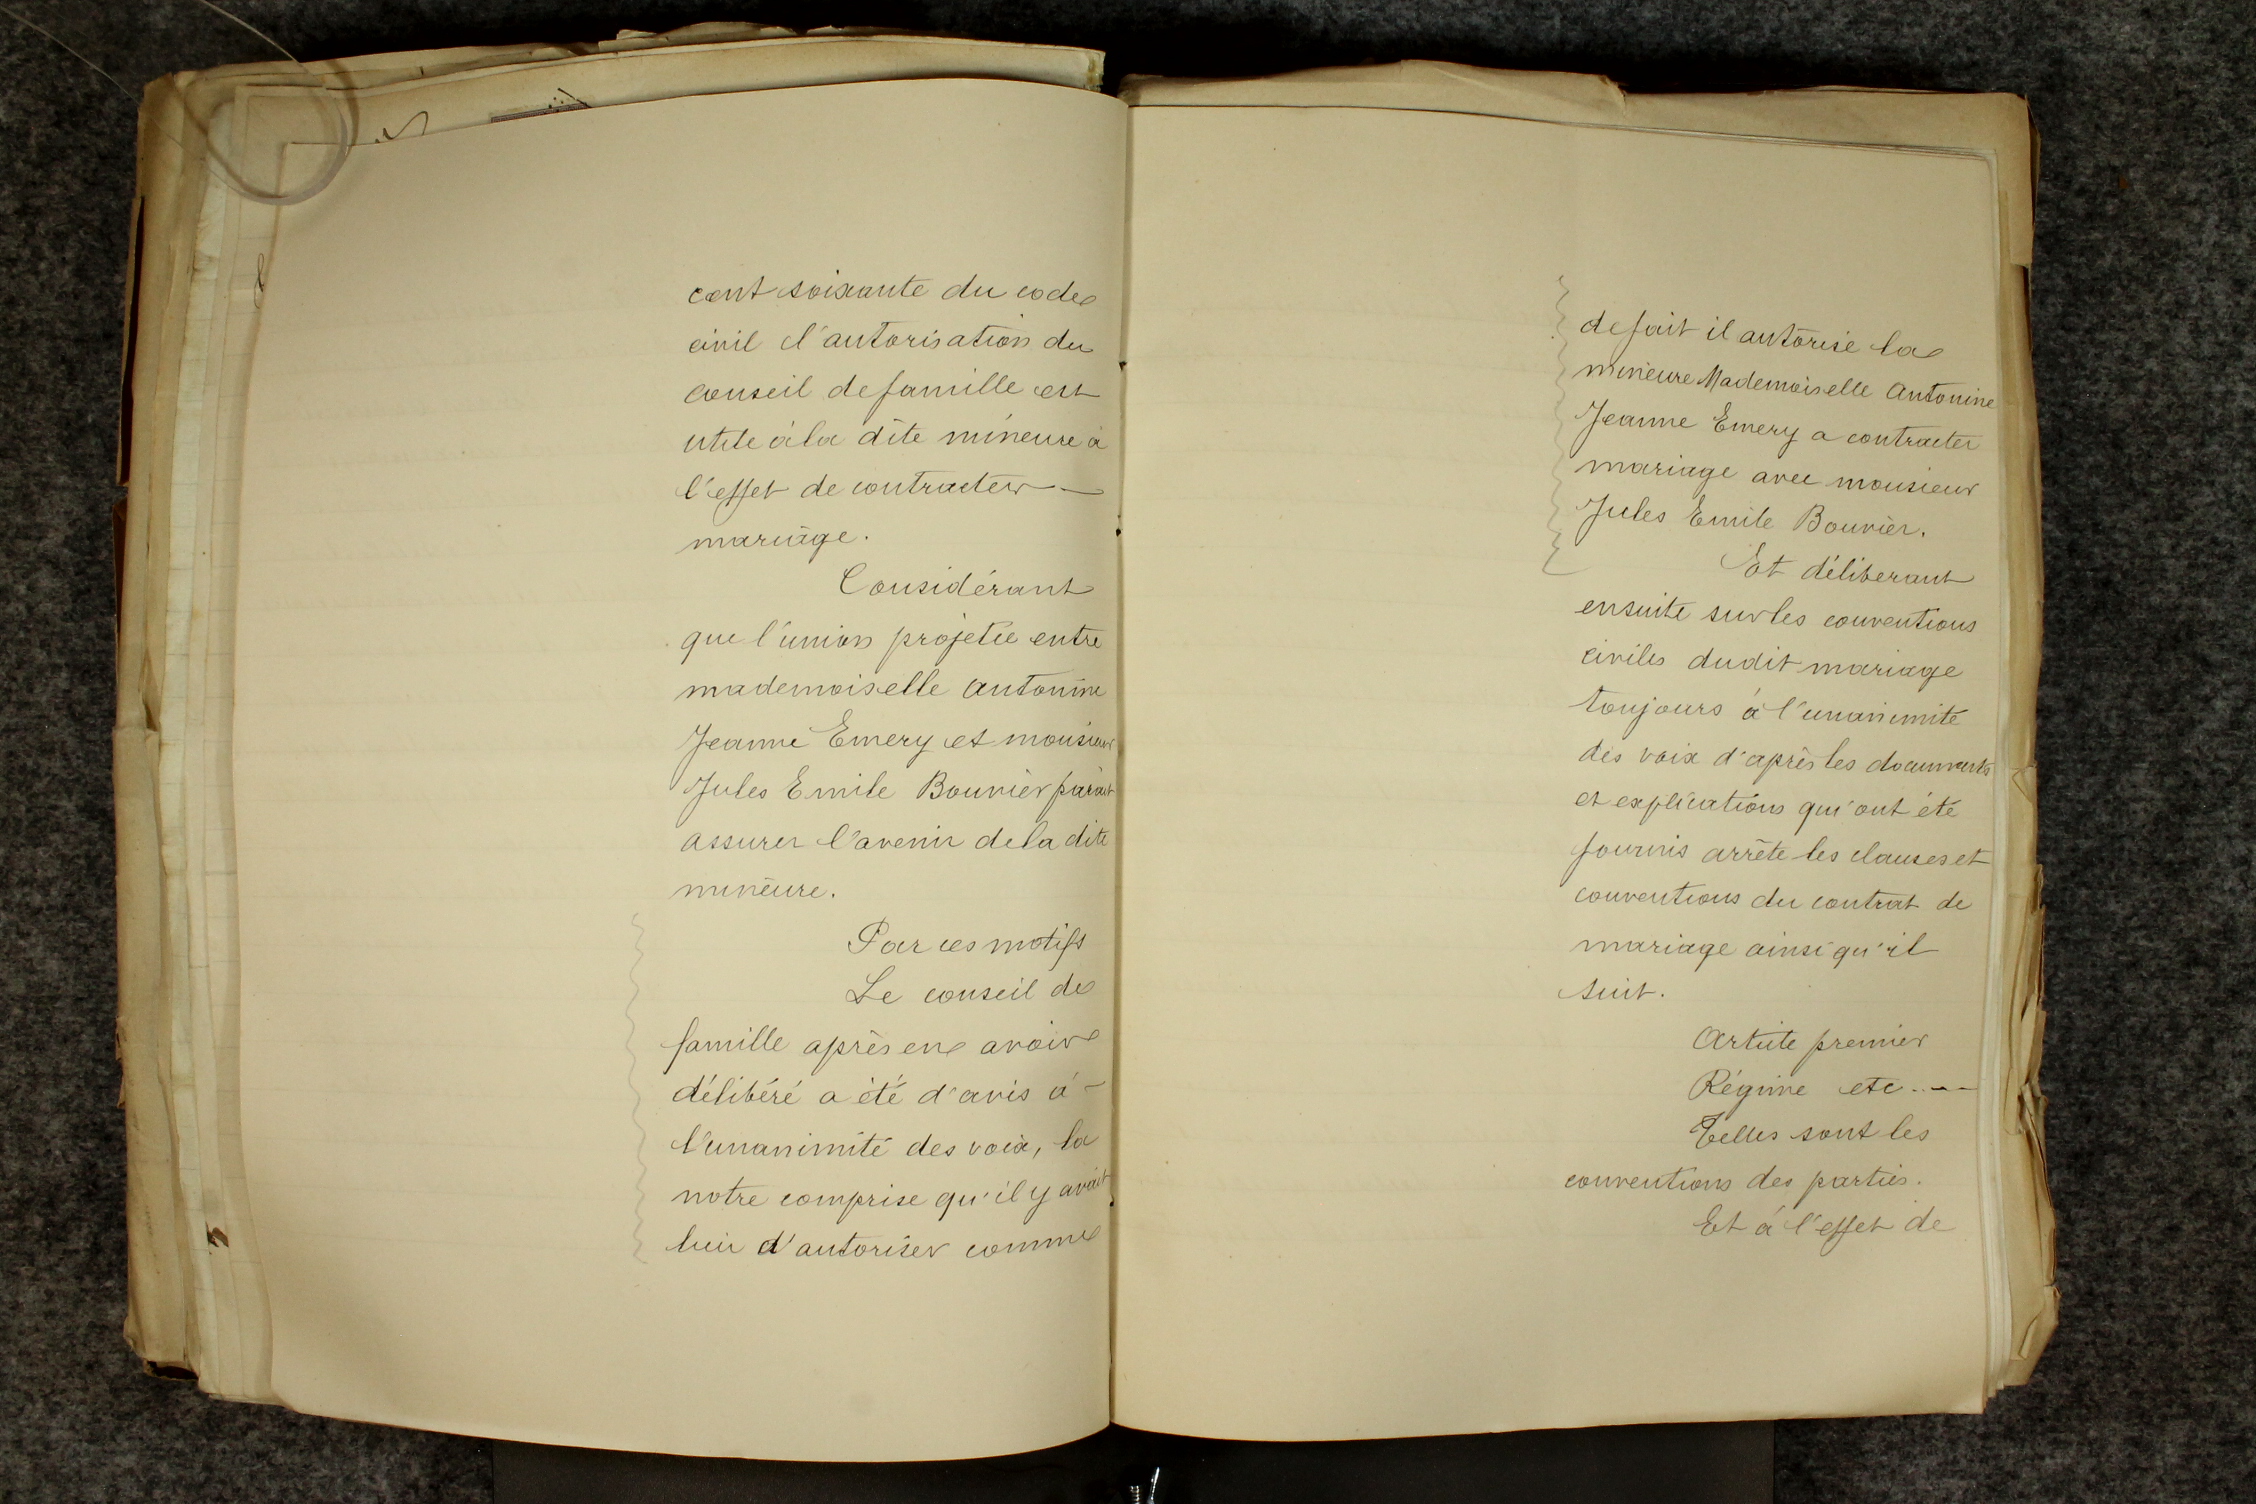 cent soixante du code
civil l'autorisation du
conseil de famille est
utile à la dite mineure à
l'effet de contracter —
mariage.
Considérant
que l'union projetée entre
mademoiselle Antonine
Jeanne Emery et monsieur
Jules Emile Bouvier parait
assurer l'avenir de la dite
mineure.
Par ces motifs
Le conseil de
famille après en avoir
délibéré a été d'avis à -
l'unanimité des voix, la
notre comprise qu'il y avait
lieu d'autoriser comme
de fait il autorise la
mineure Mademoiselle Antonine
Jeanne Emery a contracter
mariage avec monsieur
Jules Emile Bouvier.
Et déliberant
ensuite sur les conventions
civiles dudit mariage
toujours à l'unanimité
des voix d'après les documents
et explications qui ont été
fournis arrête les clauses et
conventions du contrat de
mariage ainsi qu'il
suit.
Article premier
Régime etc ....
Telles sont les
conventions des parties.
Et à l'effet de